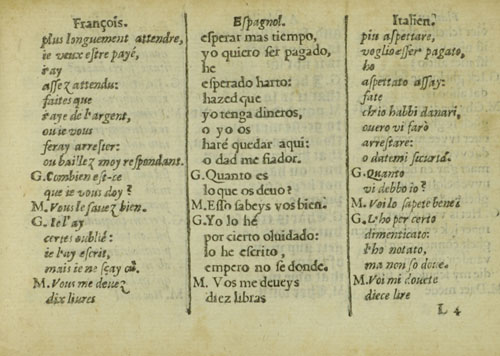 François.
plus longuement attendre,
ie veux eſtre payé,
i'ay
aſſez attendu:
faites que
i'aye de l'argent,
ou ie vous
feray arreſter:
ou baillez moy reſpondant.
G. Combien eſt-ce
que ie vous doy ?
M. Vous le ſauez bien.
G. Ie l'ay
certes oublié:
ie l'ay eſcrit,
mais ie ne ſçay
M. Vous me deuez
dix liures
Eſpagnol.
eſperar mas tiempo,
yo quiero ſer pagado,
he
eſperado harto:
hazed que
yo tenga dineros,
o yo os
haré quedar aqui:
o dad me fiador.
G. Quanto es
lo que os deuo ?
M. Eſſo ſabeys vos bien.
G. Yo lo hé
por cierto oluidado:
lo he eſcrito,
empero no ſe donde.
M. Vos me deueys
diez libras
Italien.
piu aſpettare,
voglio eſſer pagato,
ho
aſpettato aſſay:
fate
ch'io habbi danari,
ouero vi farò
arreſtare:
o datemi ſicurtà.
G. Quanto
vi debbo io ?
M. Voi lo ſapete bene.
G. L'ho per certo
dimenticato:
l'ho notato,
ma non ſo doue.
M. Voi mi douete
diece lire
L 4